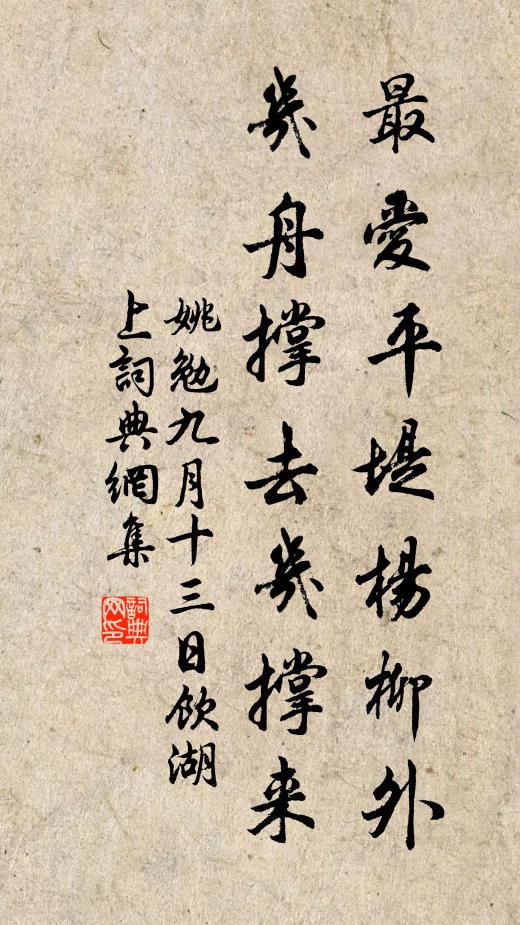 最愛平堤楊柳外
幾舟撐去幾撐来
姚勉九月十三日飲湖
上詞典網集
詞典
网印